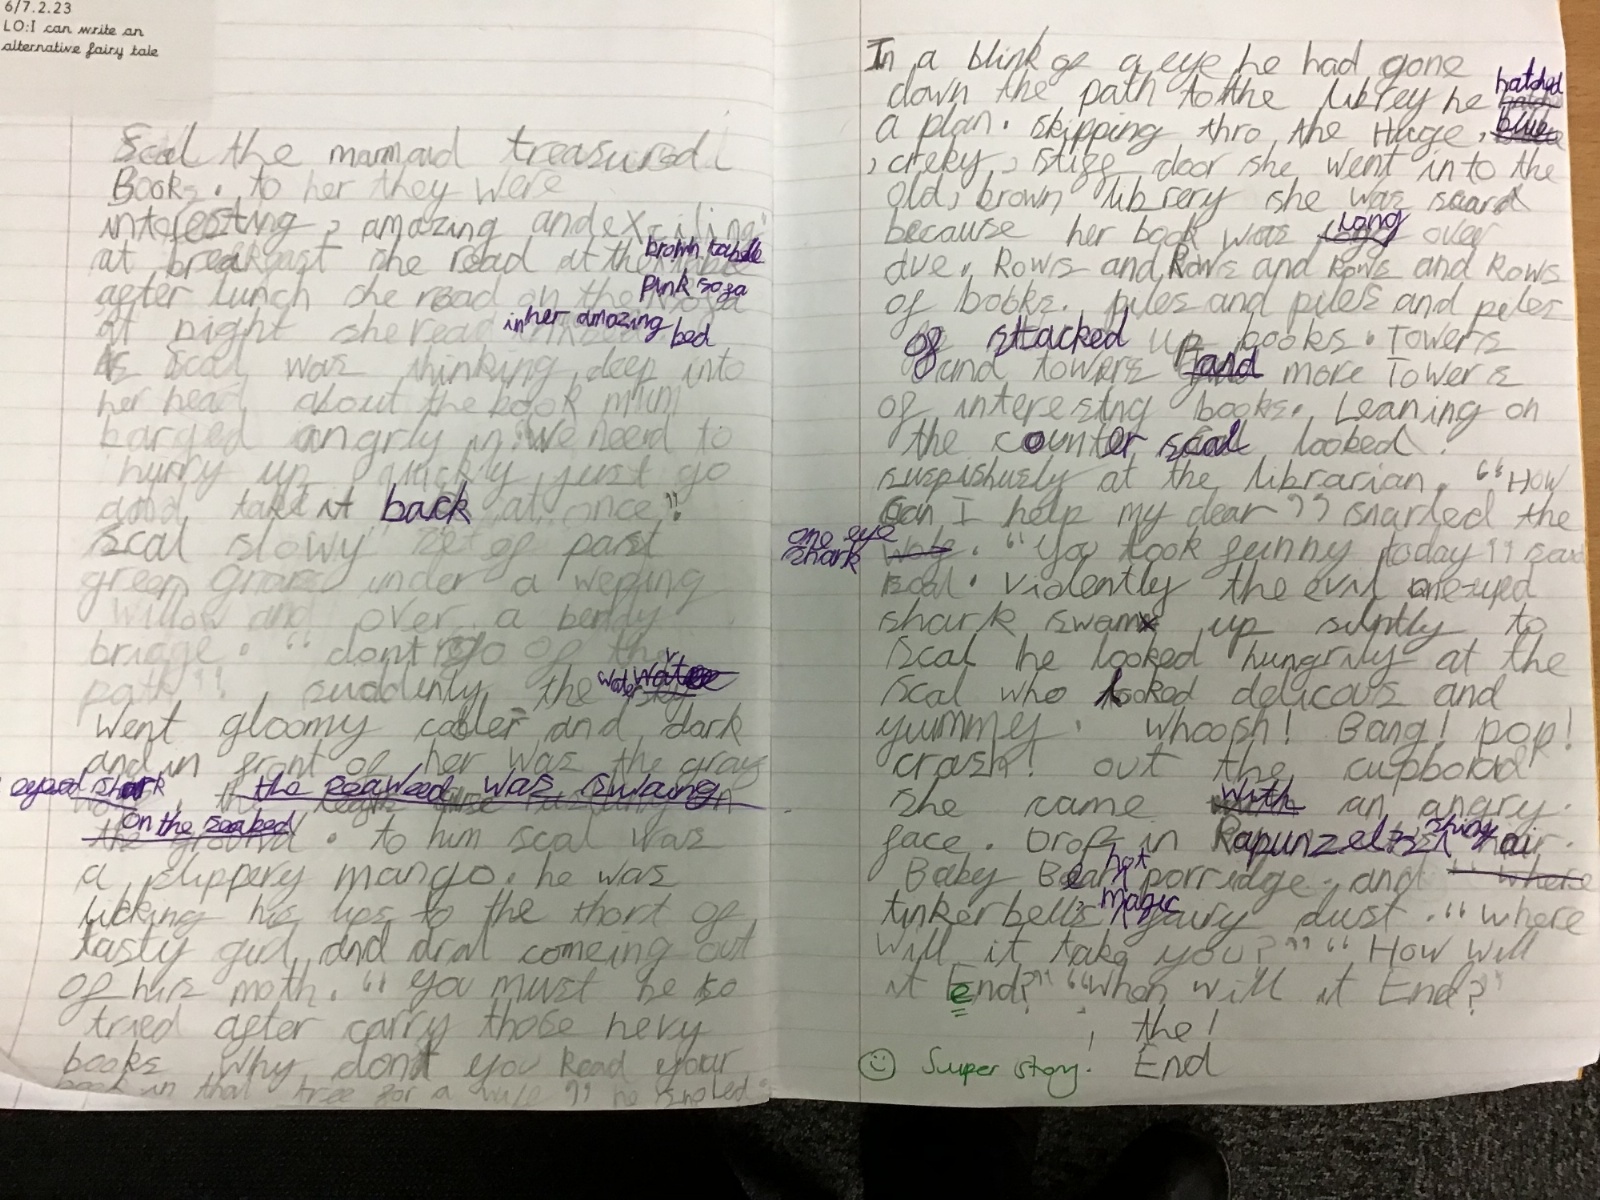 6/7.2.23
LO:I can write an
alternative fairy tale
Scal the marmaid treasured
Books. to her they were
interesting, amazing and exciting
at breakfast she read at the brown table
after lunch she read on the pink sofa
at night she read in her amazing bed
As Scal was thinking deep into
her head about the book mum
barged angrly in "we need to
hurry up quickly just go
and take it back at once".
Scal slowy set of past
green grass under a weping
willow and over a bendy
bridge. "dont go of the
path", suddenly the water
went gloomy coder and dark
and in front of her was the gray
eyed shark the seaweed was swaing
on the seabed. to him scal was
a slippery mango. he was
licking his lips to the thort of
tasty girl and dral comeing out
of his moth. "You must be so
tried after carry those hevy
books why dont you Read your
book in that tree for a wile" he
In a blink of a eye he had gone
down the path to the librey he hatched
a plan. skipping thro the Huge, blue
, creky, stiff door she went into the
old, brown librery she was scard
because her book was long over
due. Rows and Rows and Rows and Rows
of books. piles and piles and piles
of stacked up books. Towers
and towers and more Towers
of interestng books. Leaning on
the counter scal looked
suspishusly at the librarian. "How
can I help my dear" snarled the
one eye shark. "You look funny today" said
scal. violently the evil one eyed
shark swam up silntly to
scal he looked hungrily at the
scal who looked delicous and
yummy. whoosh! Bang! pop!
crash! out the cupbord
she came with an angry
face. Drop in Rapunzel's shiny hair.
Baby Bear hot porridge. and
tinkerbells magic fairy dust. "where
will it take you?" "How will
it End?" "When will it End?"
the!
End
Super story!